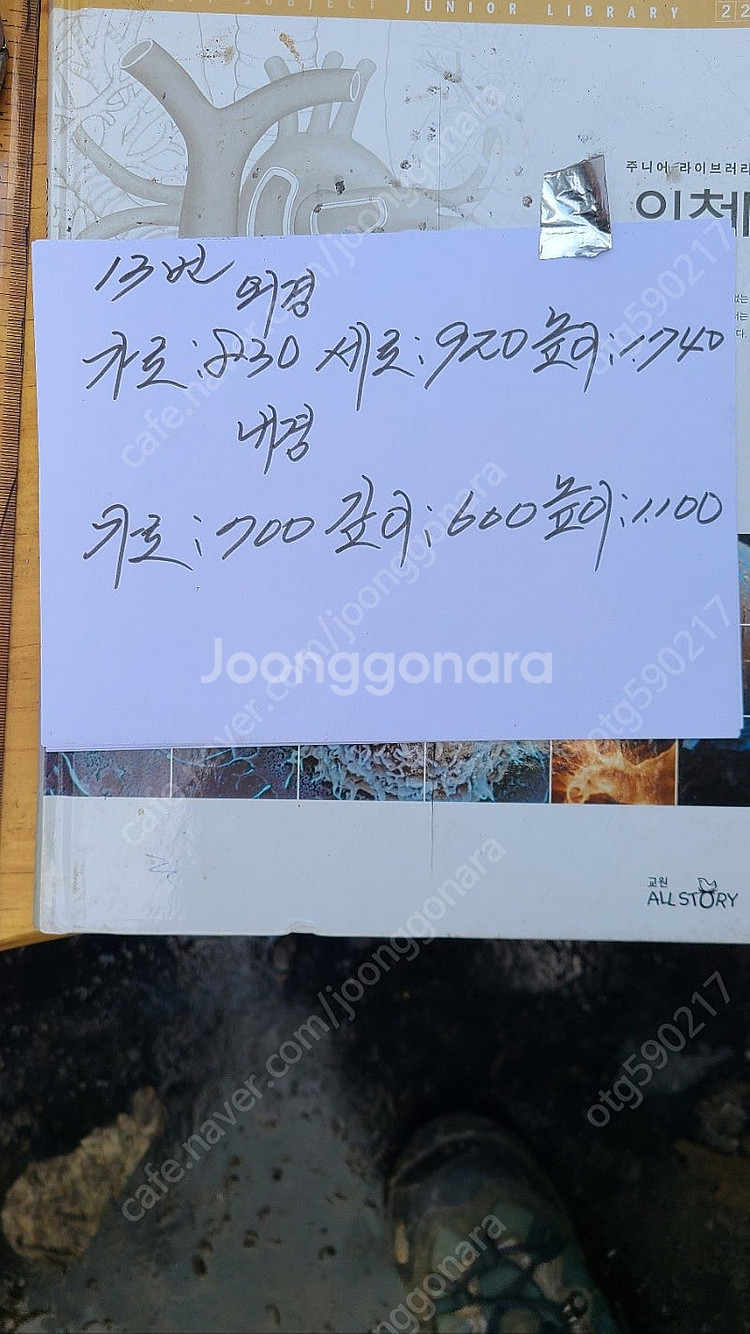 JUNIOR LIBRARY 22
주니어 라이브러리
인체
13번
외경
가로:830 세로:920 높이:1.740
내경
가로:700 깊이:600 높이:1.100
Joonggonara
교원
ALL STORY
cafe.naver.com/joonggonara
otg590217